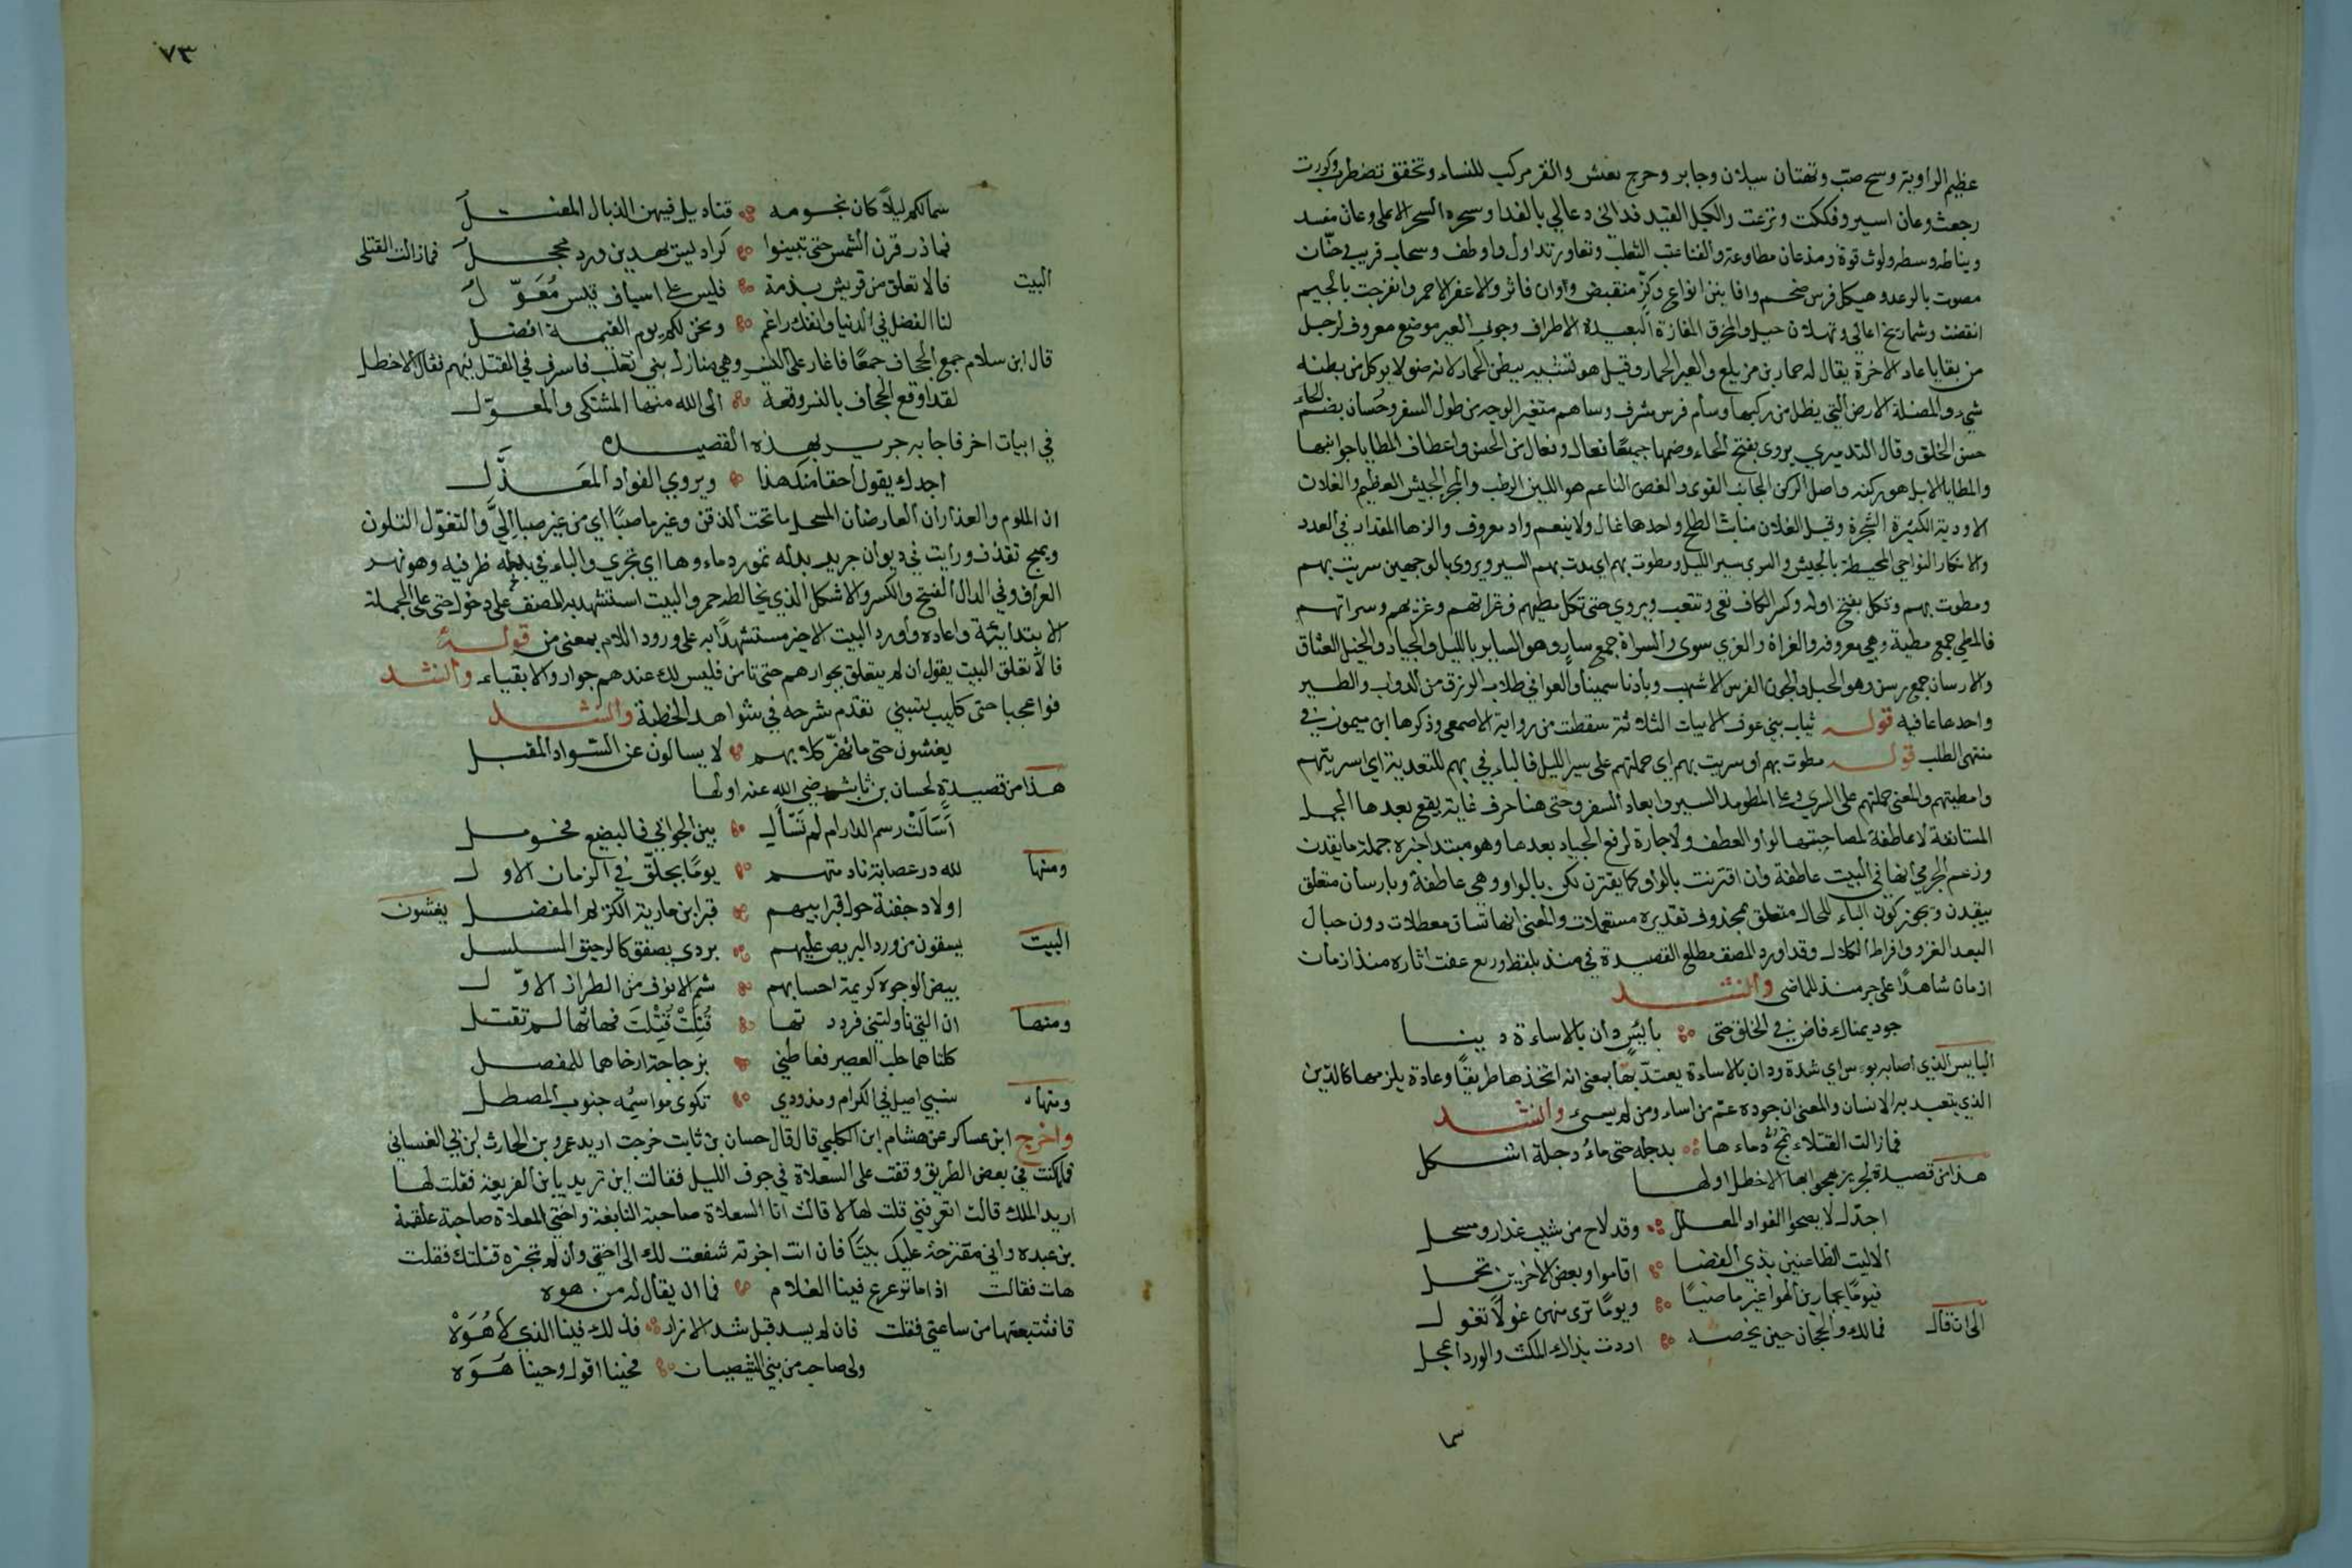 عظيم الراوية وسح صب وتهتان سيلان وجابر وحرج نعش والقر مركب للنساء وتخفق تضطرب وكررت
رجعت وعان اسير وفككت ونزعت والكبل القيد فدانى دعا لي بالفدا وسحره السحر الاعلى وعان مفسد
ويناطه وسطه ولوث قوة ومذعان مطاوعة والقنا عنب الثعلب وتعاور تداول واوطف وسحاب قريب حنات
مصوت بالرعد وهيكل فرس ضخم وافانين انواع وكز منقبض واوان فاتر والاعفر الاحمر وانفرجت بالجيم
انقضت وشماريخ اعالي وثهلان جبل والخرق المفازة البعيدة الاطراف وجوف العير موضع معروف لرجل
من بقايا عاد الاخرة يقال له حمار بن مزيلع والعير الحمار وقيل هو تشبيه ببطن الحمار لانه ضو لا يوكل من بطنه
شيء والمضلة الارض التي يضل من ركبها وسام فرس مشرف وساهم متغير الوجه من طول السفر وحُسان بضم الحاء
حسن الخلق وقال التدميري يروى بفتح الحاء وضمها جميعًا فعال وفعال من الحسن واعطاف المطايا جوانبها
والمطايا الابل هو ركنه واصل الركن الجانب القوى والغصن الناعم هو اللين الرطب والمجر الجيش العظيم والغلان
الاودية الكثيرة الشجرة وقيل الغلان منابت الطلح واحدها غال ولا ينعم واد معروف والزها المقدار في العدد
والاركان النواحي المحيطة بالجيش والسرى سير الليل ومطوت بهم اي مدت بهم السير ويروى بالوجهين سريت بهم
ومطوت بهم وتكل بفتح اوله وكسر الكاف تعى وتتعب ويروى حتى تكل مطيهم وغزاتهم وغزيهم وسراتهم
فالمطي جمع مطية وهي معروفة والغزاة والغزي سوى والسراة جمع سارٍ وهو السائر بالليل والجياد والخيل العتاق
والارسان جمع رسن وهو الحبل والجون الفرس الاشهب وبادنا سمينا والعوافي طلاب الرزق من الدواب والطير
واحدها عافية قوله ثياب بني عوف الابيات الثلاثة سقطت من رواية الاصمعي وذكرها ابن ميمون في
منتهى الطلب قوله مطوت بهم او سريت بهم اي حملتهم على سير الليل فالباء في بهم للتعدية اي اسريتهم
وامطيتهم والمعنى حملتهم على السري وعلى المطو مد السير وابعاد السفر وحتى هنا حرف غاية يقع بعدها الجمل
المستانفة لا عاطفة لمصاحبتها لواو العطف ولا جارة لرفع الجياد بعدها وهو مبتدا خبره جملة ما يقدن
وزعم الجرمي انها في البيت عاطفة وان اقترنت بالواو كما يقترن لكن بالواو وهي عاطفة وبارسان متعلق
بيقدن ويجوز كون الباء للحال متعلق بمحذوف تقديره مستعملات والمعنى انها تساق معطلات دون حبال
البعد الغزو وافراط الكلال وقد اورد المصنف مطلع القصيدة في منذ بلفظ وربع عفت اثاره منذ ازمان
ازمان شاهدًا على جر منذ للماضي وانشد
جود يمناك فاض في الخلق حتى ؞ بائسٍ دان بالاساءة دينا
البايس الذي اصابه بوس اي شدة ودان بالاساءة يعتد بها بمعنى انه اتخذها طريقًا وعادة يلزمها كالدين
الذي يتعبد به الانسان والمعنى ان جوده عم من اساء ومن لم يسيء وانشد
فمازالت القتلاء تمجّ دماءها ؞ بدجلة حتى ماءُ دجلة اشكل
هذا من قصيدة لجرير يهجو ابها الاخطل اولها
اجدّك لا يصحوا الفواد المعلل ؞ وقد لاح من شيب عذار ومسحل
الا ليت الظاعنين بذي الغضا ؞ اقاموا وبعض الاخرين تحمل
فيومًا يجارين الهوا غير ماصبًا ؞ ويومًا ترى منهن غولًا تغول
الى ان قال فمالك والجحاف حين تخصه ؞ اردت بذاك المكث والورد اعجل
سما
٧٣
سما لكم ليلًا كان نجومه ؞ قناديل فيهن الذبال المفتل
فما ذر قرن الشمس حتى تبينوا ؞ كراديس يهديهن ورد محجل فمازالت القتلى
البيت فالا تعلق من قريش بذمة ؞ فليس على اسياف قيس مُعَوّل
لنا الفضل في الدنيا وانفك راغم ؞ ونحن لكم يوم القيمة افضل
قال ابن سلام جمع الجحاف جمعًا فاغار على البشر وهي منازل بني تغلب فاسرف في القتل فيهم فقال الاخطل
لقد اوقع الجحاف بالبشر وقعة ؞ الى الله منها المشتكى والمعوّل
في ابيات اخر فاجابه جرير بهذه القصيدة
اجدك يقول احقا منك هذا ؞ ويروي الفواد المَعَذَّل
ان الملوم والعذاران العارضان المسحل ما تحت الذقن وغير ماصبًا اي من غير صبا اليّ والتغوّل التلون
ويمج تقذف ورايت في ديوان جرير بدله تمور دماءوها اي تجري والباء في بدجلة ظرفيه وهو نهر
العراق وفي الدال الفتح والكسر والاشكل الذي يخالطه حمر والبيت استشهد به المصنف على دخول حتى على الجملة
الابتدائية واعاده واورد البيت الاخير مستشهدًا به على ورود اللام بمعنى من قوله
فالا تعلق البيت يقول ان لم يتعلق بجوارهم حتى تامن فليس لك عندهم جوار ولا بقياء وانشد
فواعجبا حتى كليب تسبني تقدم شرحه في شواهد الخطبة وانشد
يغشون حتى ما تهرّ كلابهم ؞ لا يسالون عن السّواد المقبل
هذا من قصيدة لحسان بن ثابت رضي الله عنه اولها
أَسَالَتْ رسم الدار ام لم تَسْأل ؞ بين الجوابي فالبضيع فخومل
ومنها لله در عصابة نادمتهم ؞ يومًا بجلّق في الزمان الاول
اولاد جفنة حول قبر ابيهم ؞ قبر ابن مارية الكريم المفضل يغشون
البيت يسقون من ورد البريص عليهم ؞ بردى يصفق كالرحيق السلسل
بيض الوجوه كريمة احسابهم ؞ شم الانوف من الطراز الاوّل
ومنها ان التي ناولتني فرددتها ؞ قُتِلَتْ قُتِلْتَ فهاتها لم تقتل
كلتاهما حلب العصير فعاطني ؞ بزجاجة ارخاهما للمفصل
ومنها نسبي اصيل في الكرام ومذودي ؞ تكوى مواسِمُه جنوب المصطل
واخرج ابن عساكر عن هشام ابن الكلبي قال قال حسان بن ثابت خرجت اريد عمرو بن الحارث بن ابي الغساني
فلما كنت في بعض الطريق وقفت على السعلاة في جوف الليل فقالت اين تريد يا ابن الفريعة فقلت لها
اريد الملك قالت اتعرفني قلت لها لا قالت انا السعلاة صاحبة النابغة واختي المعلاة صاحبة علقمة
بن عبده واني مقترحة عليك بيتًا فان انت اجزته شفعت لك الى اختي وان لم تجزه قتلتك فقلت
هات فقالت اذا ما ترعرع فينا الغلام ؞ فما ان يقال له من هوه
فانتبعتها من ساعتي فقلت فان لم يسد قبل شد الازار ؞ فذلك فينا الذي لا هُوَهْ
ولى صاحب من بني الشيصبان ؞ فحينا اقول وحينا هُوَه